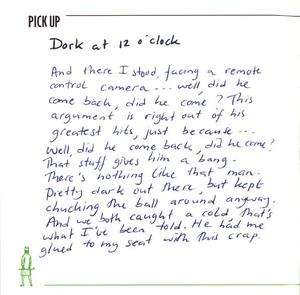 PICK UP
Dork at 12 o'clock
And there I stood, facing a remote
control camera... well, did he
come back, did he come? This
argument is right out of his
greatest hits, just because...
Well, did he come back, did he come?
That stuff gives him a bang.
There's nothing like that man.
Pretty dark out there, but kept
chucking the ball around anyway.
And we both caught a cold, that's
what I've been told. He had me
glued to my seat with this crap.